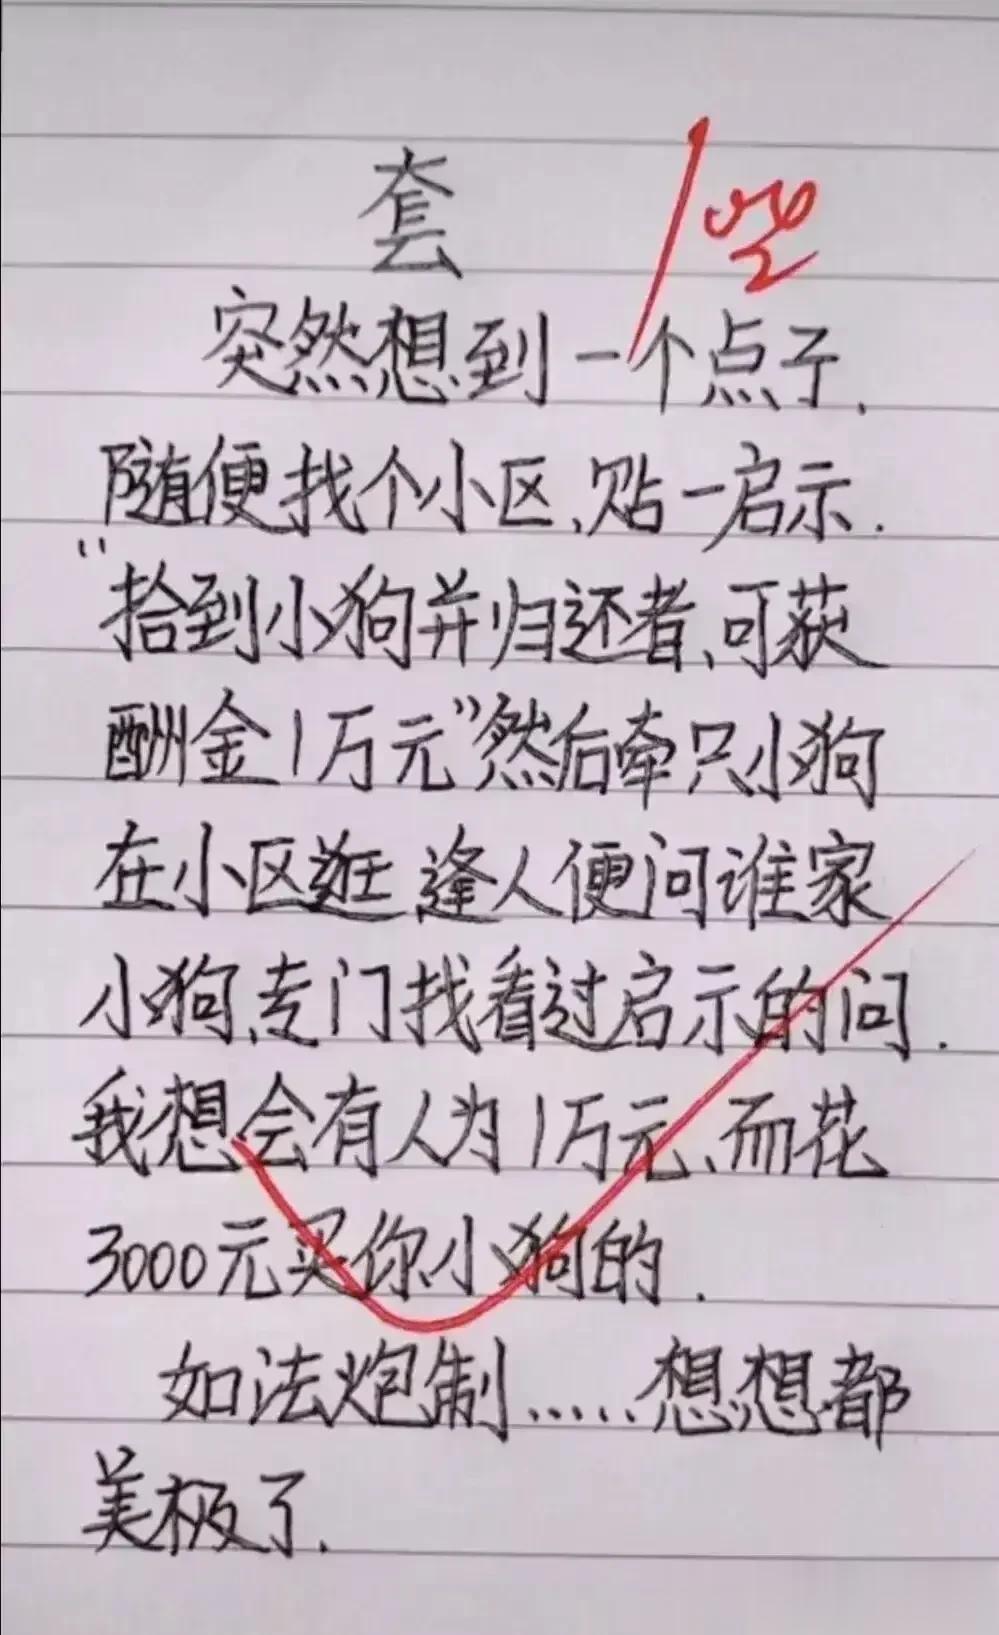 套
突然想到一个点子.
随便找个小区、贴一启示.
“拾到小狗并归还者、可获
酬金1万元”然后牵只小狗
在小区逛 逢人便问谁家
小狗、专门找看过启示的问.
我想、会有人为1万元、而花
3000元买你小狗的.
如法炮制.....想想都
美极了.